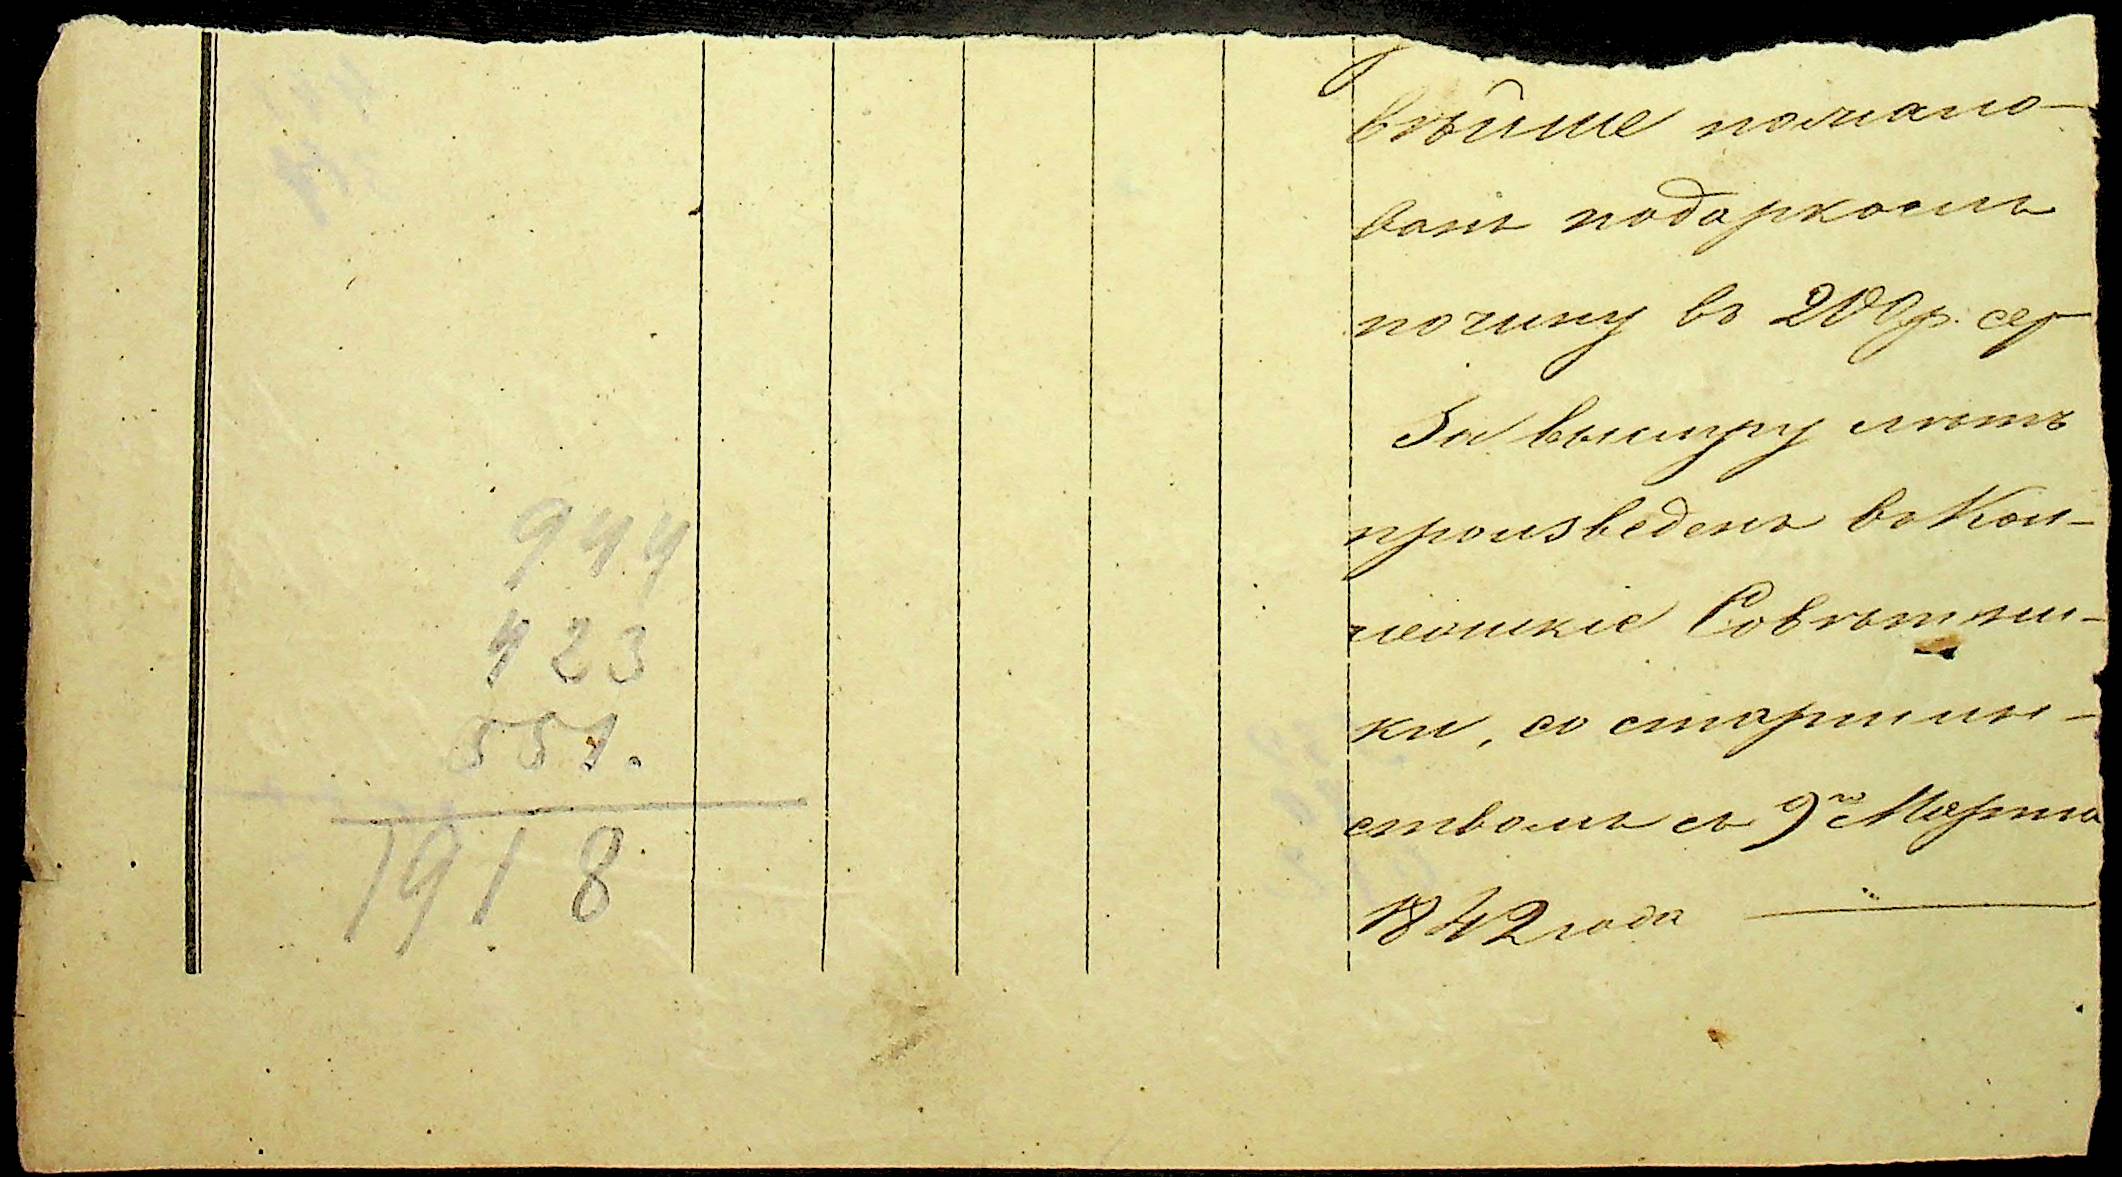 944
423
551.
1918
вѣйше пожало-
ванъ подаркомъ
по чину въ 200 р. сер
За выслугу лѣтъ
произведенъ въ Кол-
лежскіе Совѣтни-
ки, со старшин-
ствомъ съ 9го Марта
1842 года